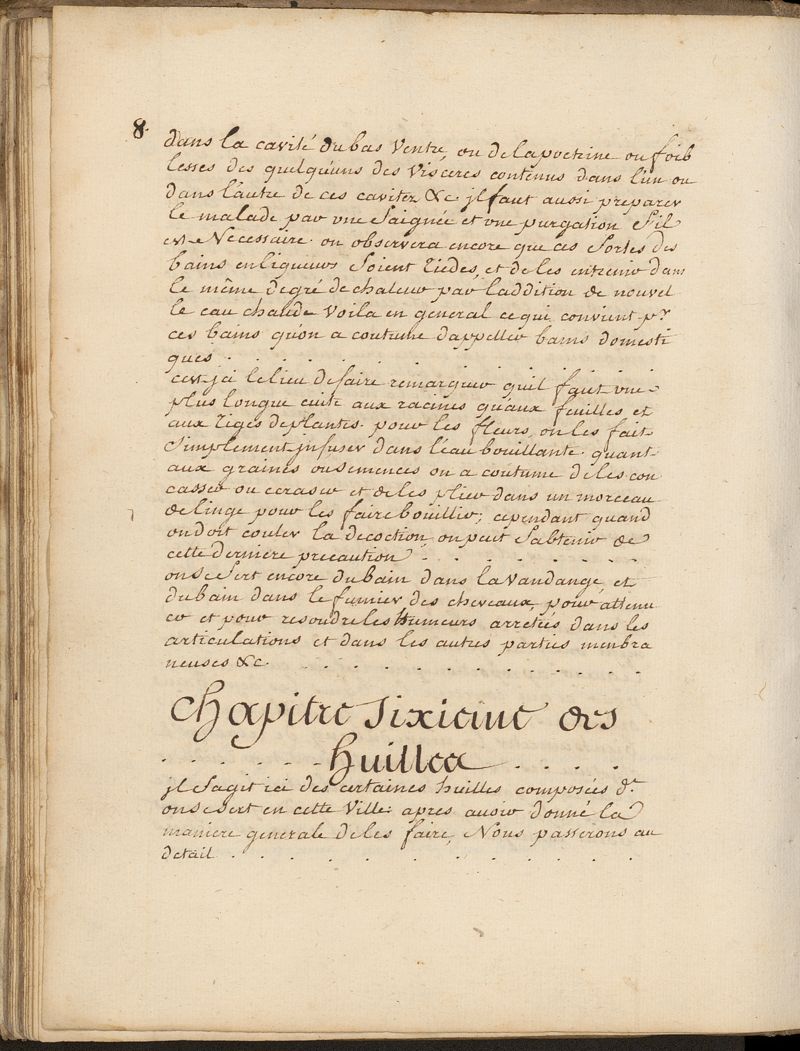 8.
dans la cavité du bas Ventre, ou de la poctrine ou foib
lesses des quelqu'uns des Visceres contenus dans l'un ou
dans l'autre de ces cavitez &c. jl faut aussi preparer
le malade par vne Saignée et vne purgation S'il
est Necessaire. on observera encore que ces Sortes des
bains en liqueurs Soient tiedes, et de les entrenir dans
le même degré de chaleur par l'addition de nouvel
le eau chaude Voila en general ce qui convient pr
ces bains qu'on a coutume d'appeller bains domesti
ques . . . . . . . . . . . .
c'est jci le lieu de faire remarquer qu'il faut vne
plus longue cuite aux racines qu'aux feuilles et
aux tiges de plantes. pour les fleurs, on les fait
Simplement jnfuser dans l'eau bouillante. quant
aux graines ou semences on a coutume de les con
casser ou ecraser et de les plier dans un morceau
de linge pour les faire bouillir; cependant quand
on doit couler la decoction, on peut Sabtenir de
cette derniere precaution . . . . . . . .
on se Sert encore du bain dans la Vandange, et
du bain dans le fumier des chevaux, pour attenu
er et pour resoudre les humeurs arretées dans les
articulations et dans les autres parties membra
neuses &c. . . . . . . . . . . .
Chapitre Sixieme des
. . . . . . huilles . . . .
jl S'agit ici des certaines huilles composées dt
on se sert en cette Ville. apres avoir donné la
maniere generale de les faire, Nous passerons au
detail . . . . . . . . . . .